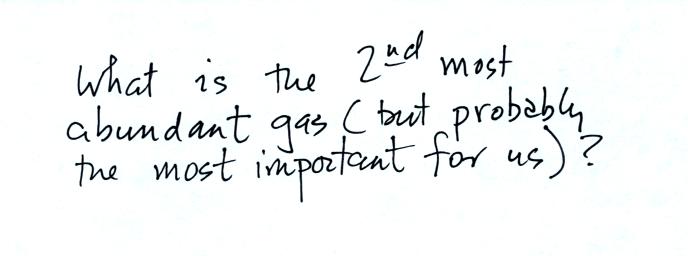 What is the 2nd most
abundant gas (but probably
the most important for us)?